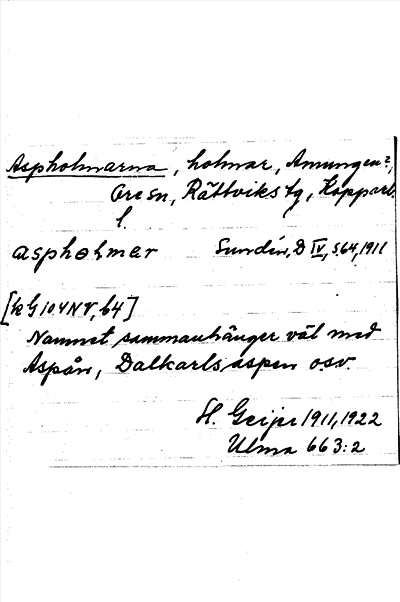 Aspholmarna, holmar, Amungen?,
Ore sn, Rättviks tg, Kopparb.
l.
aspholmer Sundin, D IV, s. 64, 1911
[kG 104NV, b4]
Namnet sammanhänger väl med
Aspån, Dalkarlsaspen osv.
H. Geijer 1911, 1922
Ulma 663:2